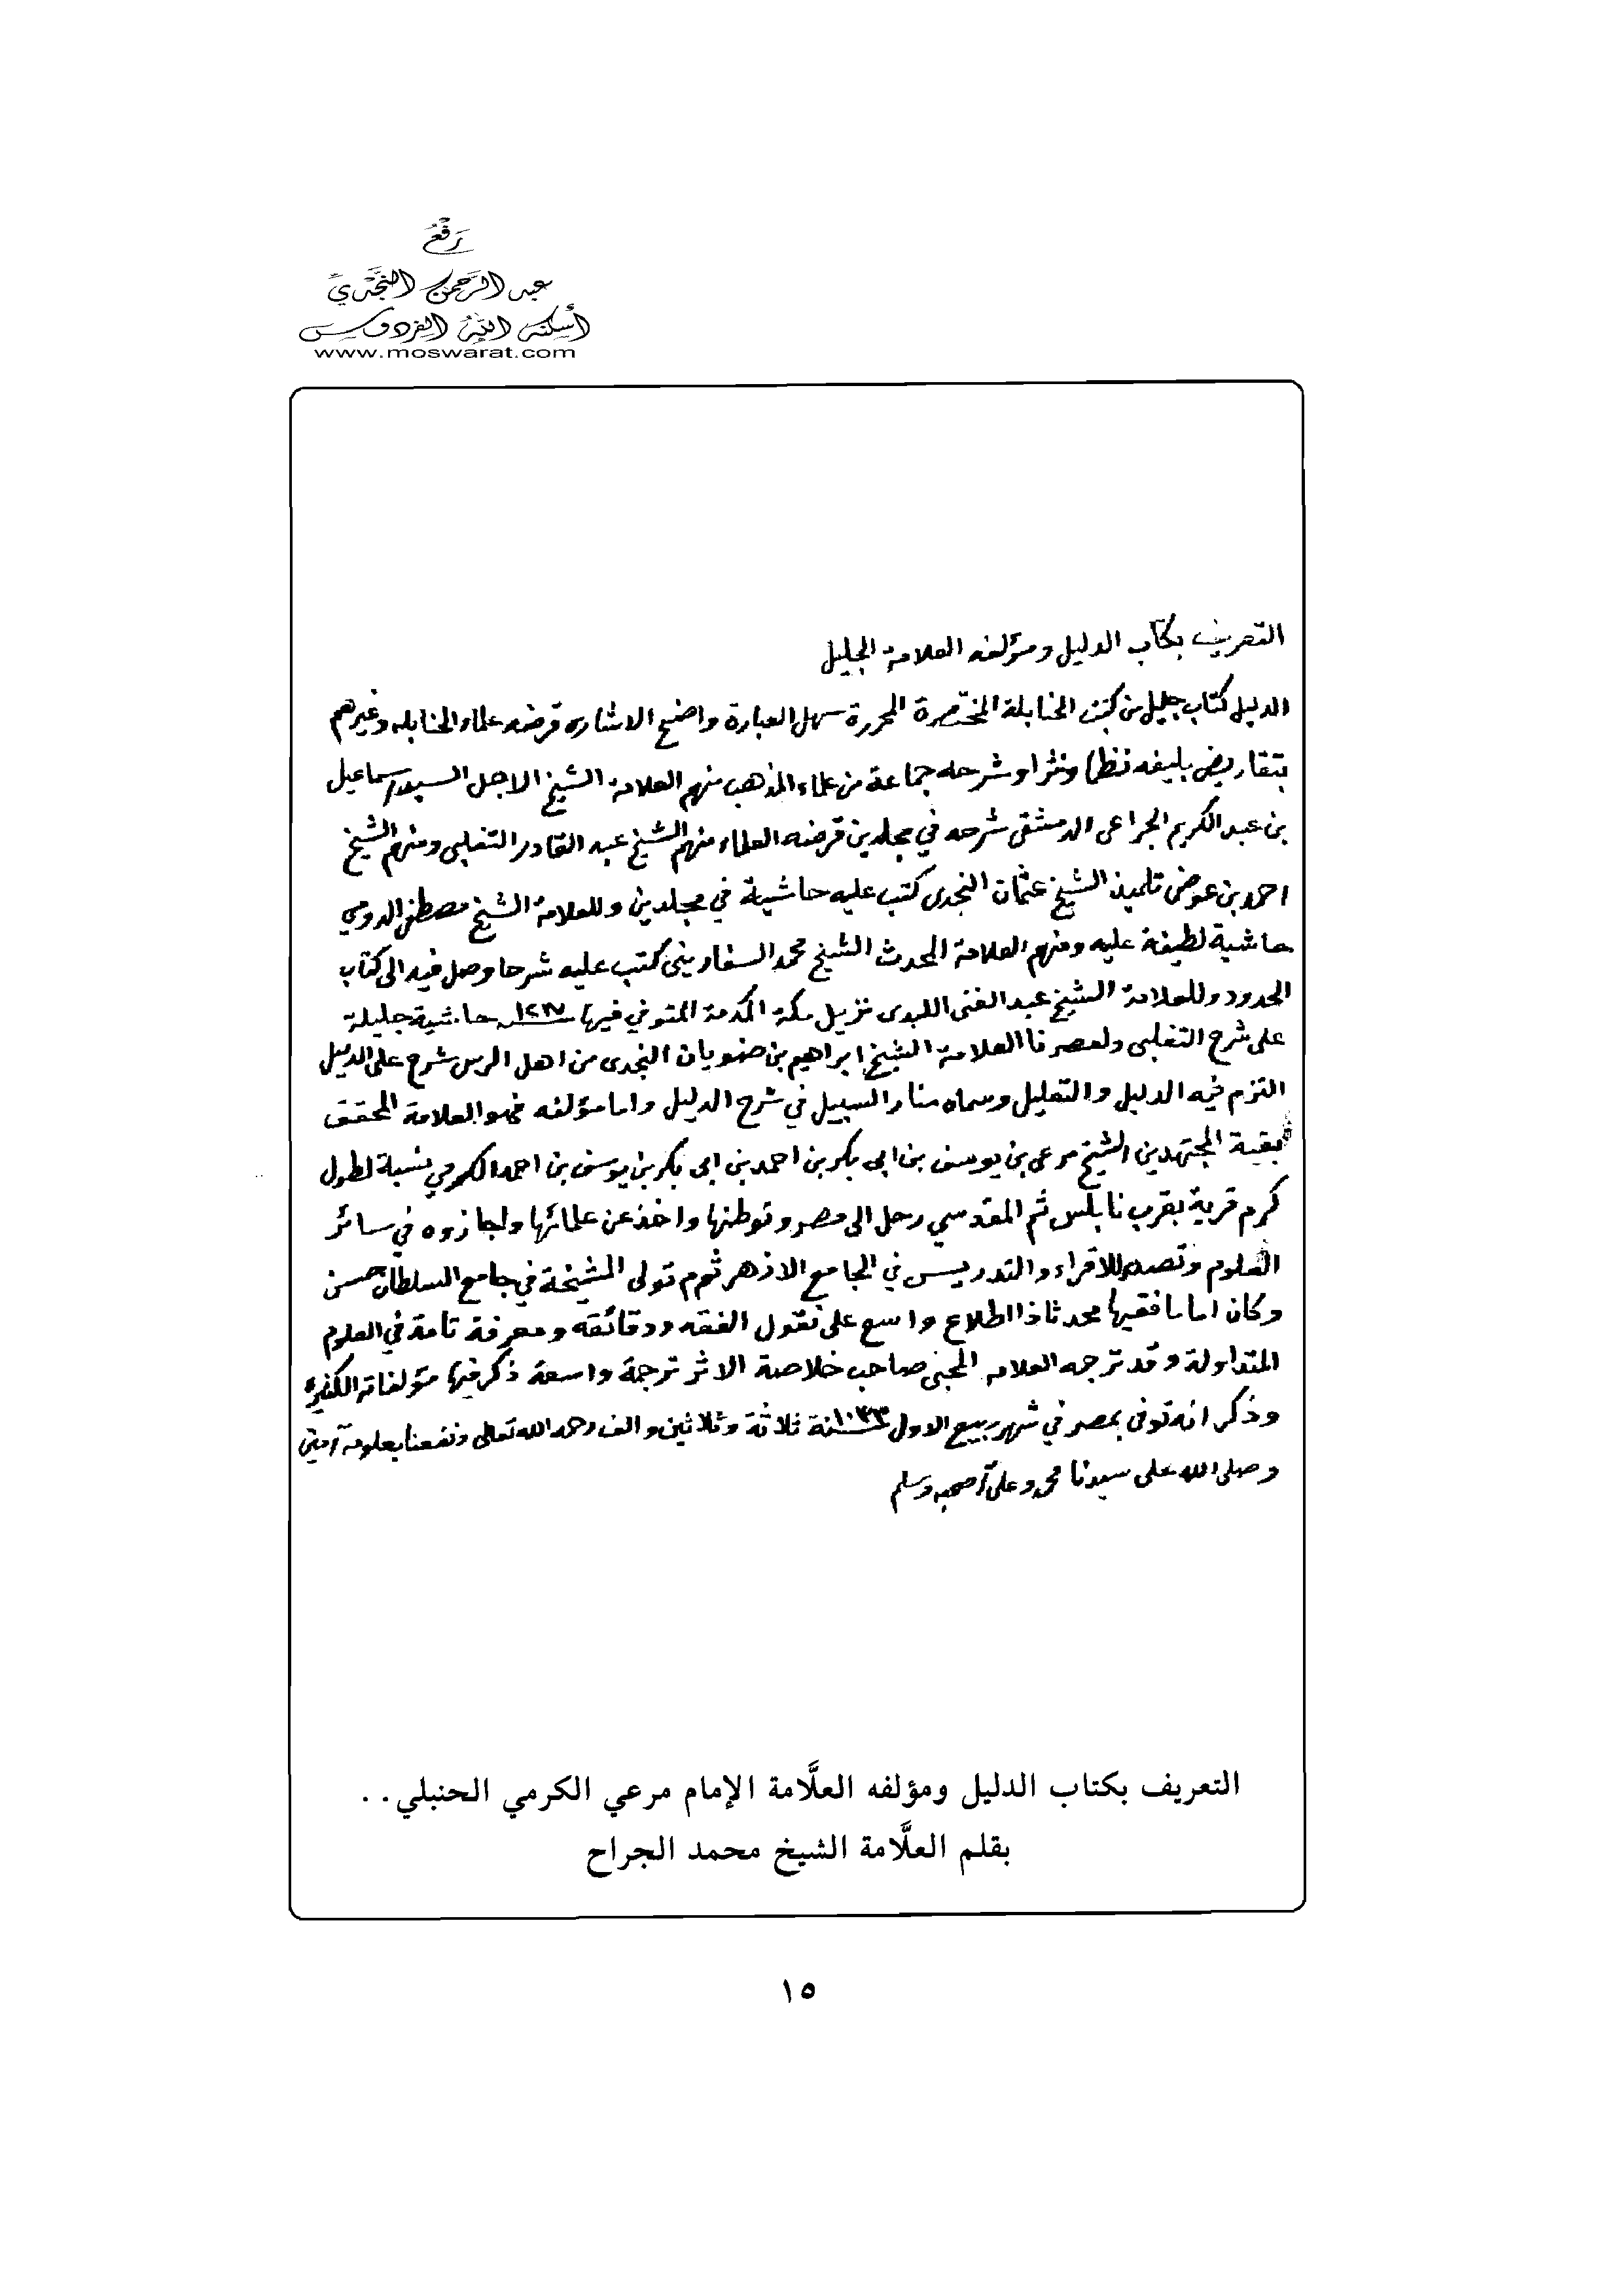 رفع
عبد الرحمن النجدي
أسكنه الله الفردوس
www.moswarat.com
التعريف بكتاب الدليل ومؤلفه العلامة الجليل
الدليل كتاب جليل من كتب الحنابلة المختصرة المحررة سهل العبارة واضح الاشاره قرضه علماء الحنابله وغيرهم
بتقاريض بليغه نظما ونثرا وشرحه جماعة من علماء المذهب منهم العلامة الشيخ الاجل السيد اسماعيل
بن عبد الكريم الجراعى الدمشقى شرحه في مجلدين قرضه العلماء منهم الشيخ عبد القادر التغلبى ومنهم الشيخ
احمد بن عوض تلميذ الشيخ عثمان النجدى كتب عليه حاشية في مجلدين وللعلامة الشيخ مصطفى الدومي
حاشية لطيفة عليه ومنهم العلامة المحدث الشيخ محمد السفارينى كتب عليه شرحا وصل فيه الى كتاب
الحدود وللعلامة الشيخ عبد الغنى اللبدى نزيل مكة المكرمة المتوفي فيها حاشية جليلة
على شرح التغلبى ولعصرنا العلامة الشيخ ابراهيم بن ضويان النجدى من اهل الرس شرح على الدليل
التزم فيه الدليل والتعليل وسماه منار السبيل في شرح الدليل واما مؤلفه فهو العلامة المحقق
بقية المجتهدين الشيخ مرعى بن يوسف بن ابى بكر بن احمد بن ابى بكر بن يوسف بن احمد الكرمي نسبة لطول
كرم قرية بقرب نابلس ثم المقدسي رحل الى مصر وتوطنها واخذ عن علمائها واجازوه في سائر
العلوم وتصدر للاقراء والتدريس في الجامع الازهر ثم تولى المشيخة في جامع السلطان حسن
وكان اماما فقيها محدثا ذا اطلاع واسع على نقول الفقه ودقائقه ومعرفة تامة في العلوم
المتداولة وقد ترجمه العلامه المحبى صاحب خلاصة الاثر ترجمة واسعة ذكر فيها مؤلفاته الكثيرة
وذكر انه توفى بمصر في شهر ربيع الاول ١٠٣٣ سنة ثلاثة وثلاثين والف رحمه الله تعالى ونفعنا بعلومه آمين
وصلى الله على سيدنا محمد وعلى آله وصحبه وسلم
التعريف بكتاب الدليل ومؤلفه العلَّامة الإمام مرعي الكرمي الحنبلي . .
بقلم العلَّامة الشيخ محمد الجراح
١٥